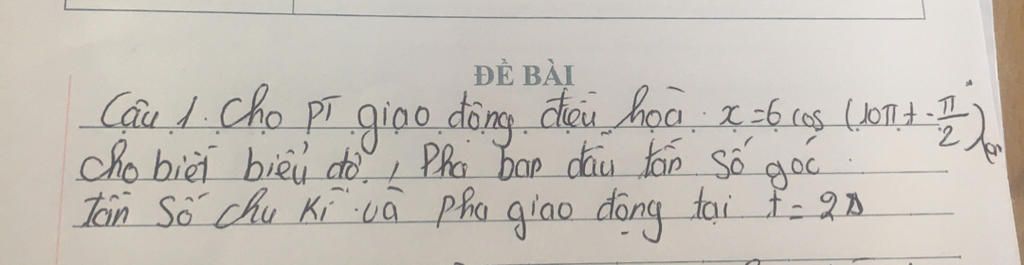 ĐỀ BÀI
Câu 1. Cho PT giao động điều hoà. x = 6 cos (10π t - π/2) cm
cho biết biểu đồ, Pha ban đầu tần số góc
tần số chu kì và pha giao động tại t = 2s